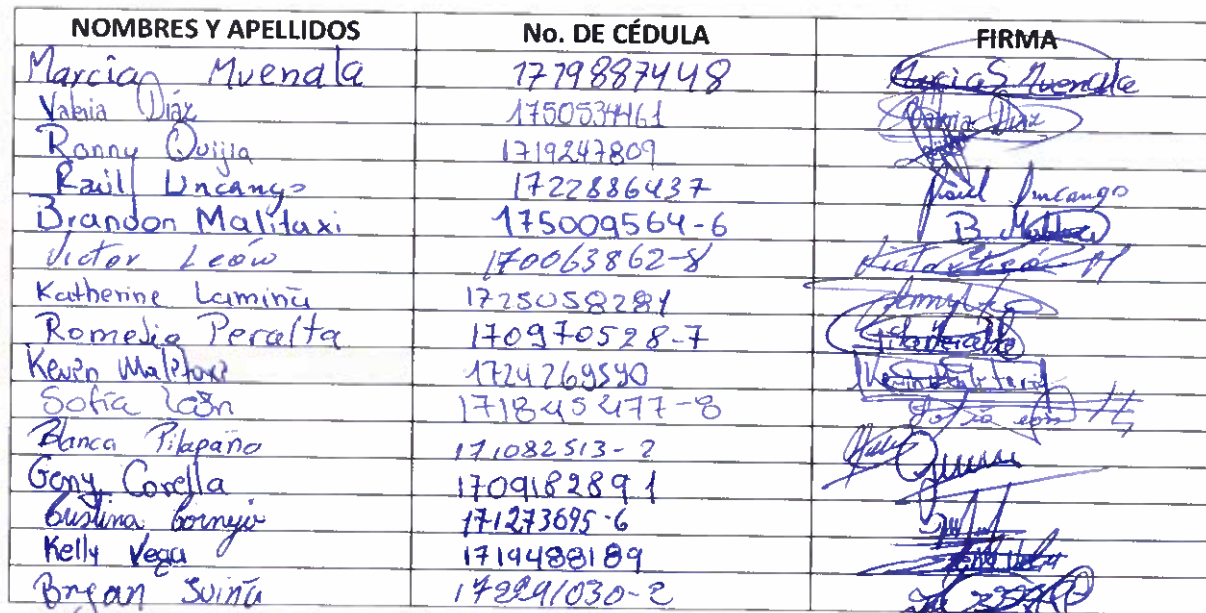 NOMBRES Y APELLIDOS No. DE CÉDULA FIRMA
Marcia Muenala 1719887448 Marcia S. Muenala
Valeria Díaz 1750534461 Valeria Díaz
Ronny Quijia 1719247809
Raúl Uncango 1722886437 Raúl Uncango
Brandon Malitaxi 175009564-6 B. Malitaxi
Victor León 170063862-8 Victor León M
Katherine Lamiña 1725058281
Romelia Peralta 170970528-7
Kevin Malitaxi 1724269590 Kevin Malitaxi
Sofía León 171845477-8 Sofía León
Blanca Pilapaño 171082513-2
Geny Corella 1709182891
Cristina Cornejo 171273695-6
Kelly Vega 1719488189 Kelly Vega
Bryan Suiña 172291030-2